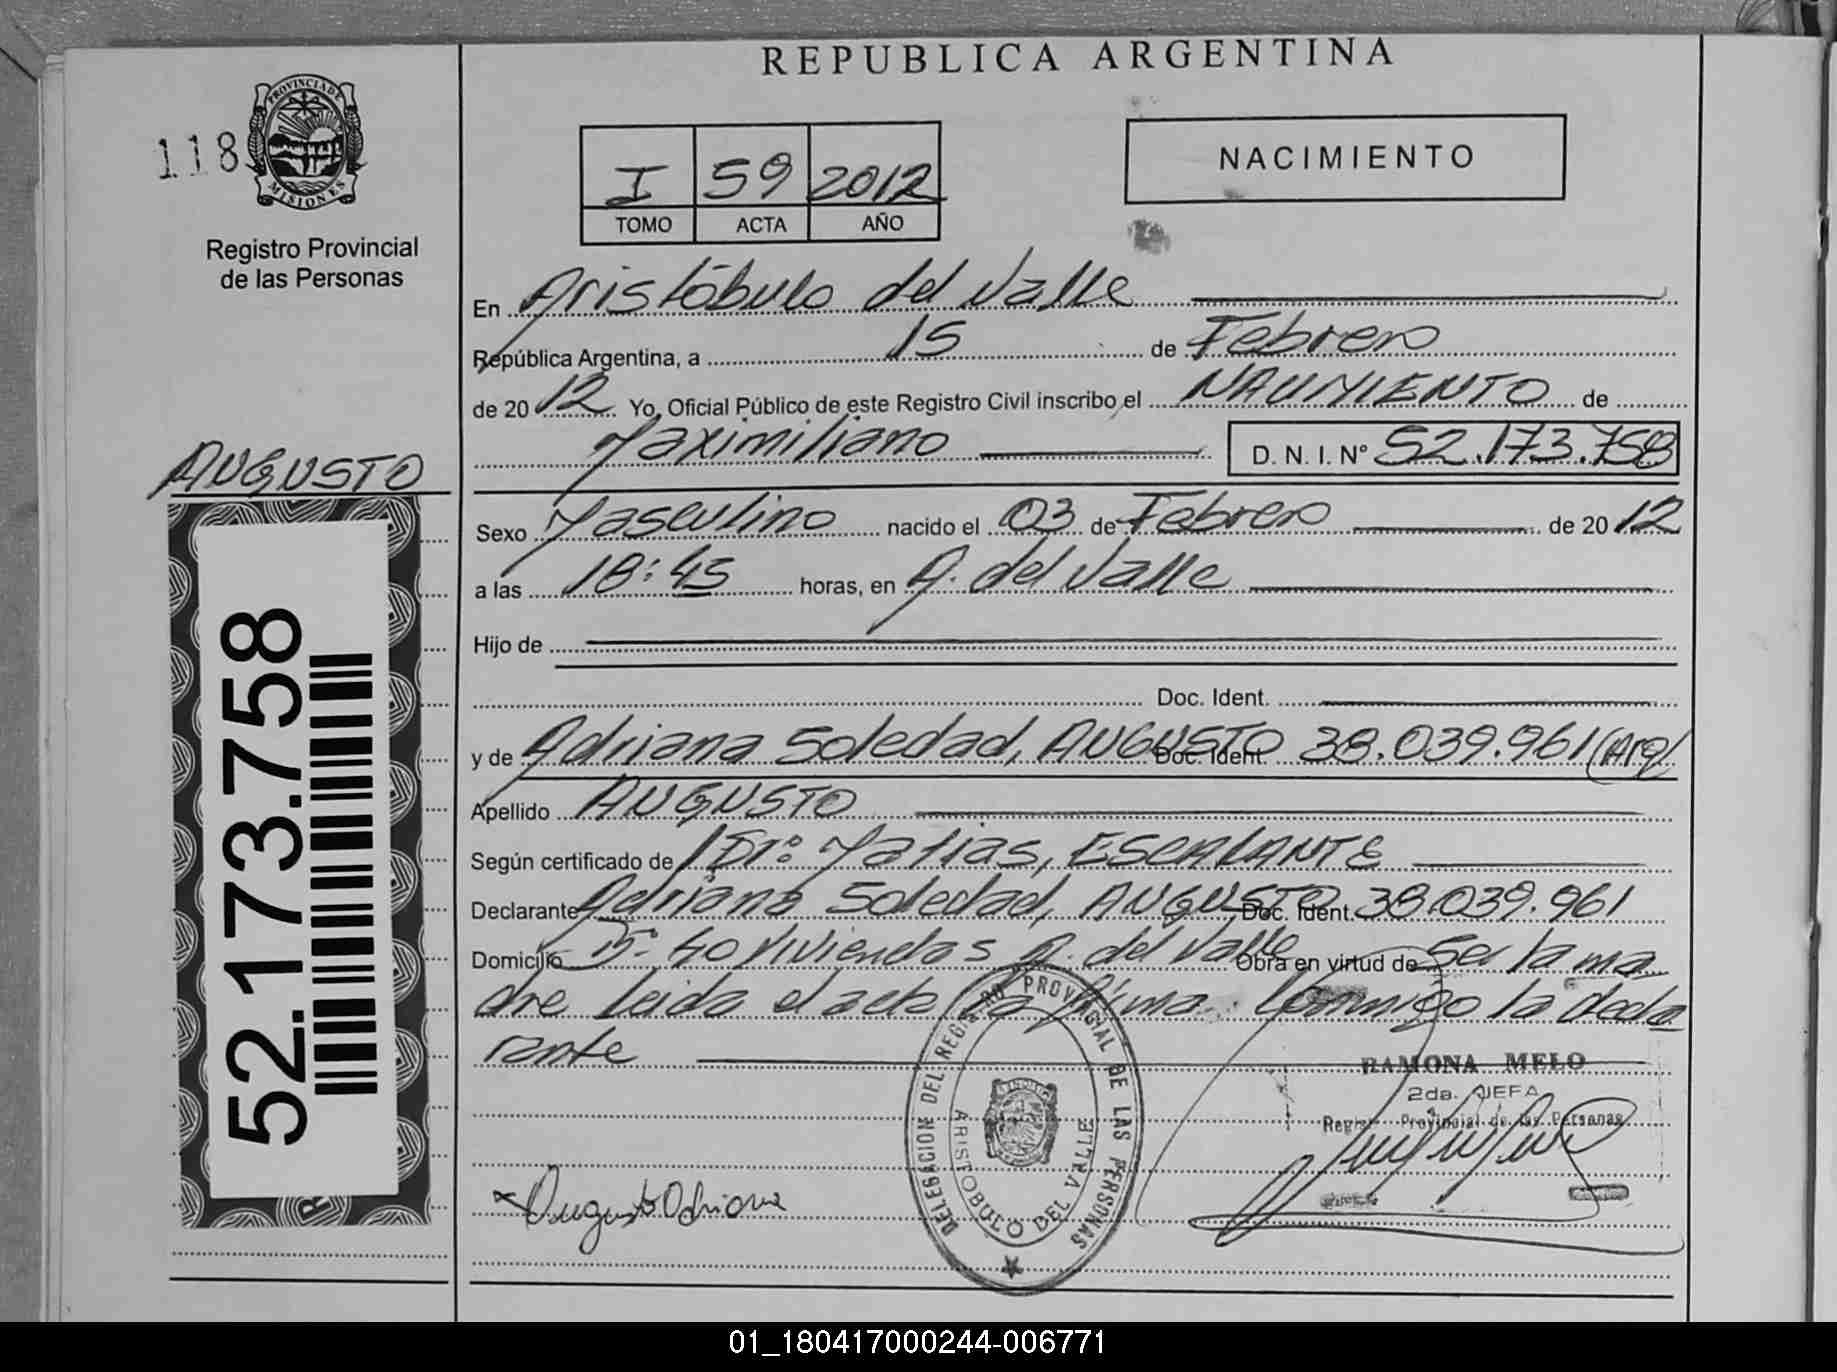 REPUBLICA ARGENTINA
118
PROVINCIA DE
MISIONES
Registro Provincial
de las Personas
I 59 2012
TOMO ACTA AÑO
NACIMIENTO
En Aristóbulo del Valle
República Argentina, a 15 de Febrero
de 20 12 Yo, Oficial Público de este Registro Civil inscribo el NACIMIENTO de
Maximiliano D. N. I. Nº 52.173.758
AUGUSTO
Sexo Masculino nacido el 03 de Febrero de 20 12
a las 18:45 horas, en A. del Valle
Hijo de
Doc. Ident.
y de Adriana Soledad, AUGUSTO Doc. Ident. 38.039.961 (Arg)
Apellido AUGUSTO
Según certificado de Dr: Matias, ESCALANTE
Declarante Adriana Soledad, AUGUSTO Doc. Ident. 38.039.961
Domicilio Bº 40 Viviendas A. del Valle Obra en virtud de Ser la ma
dre Leida el acta la firma Conmigo la decla
rante
52.173.758
RAMONA MELO
2da. JEFA
Registro Provincial de las Personas
DELEGACION DEL REGISTRO PROVINCIAL DE LAS PERSONAS
ARISTOBULO DEL VALLE
Augusto Adriana
01_180417000244-006771